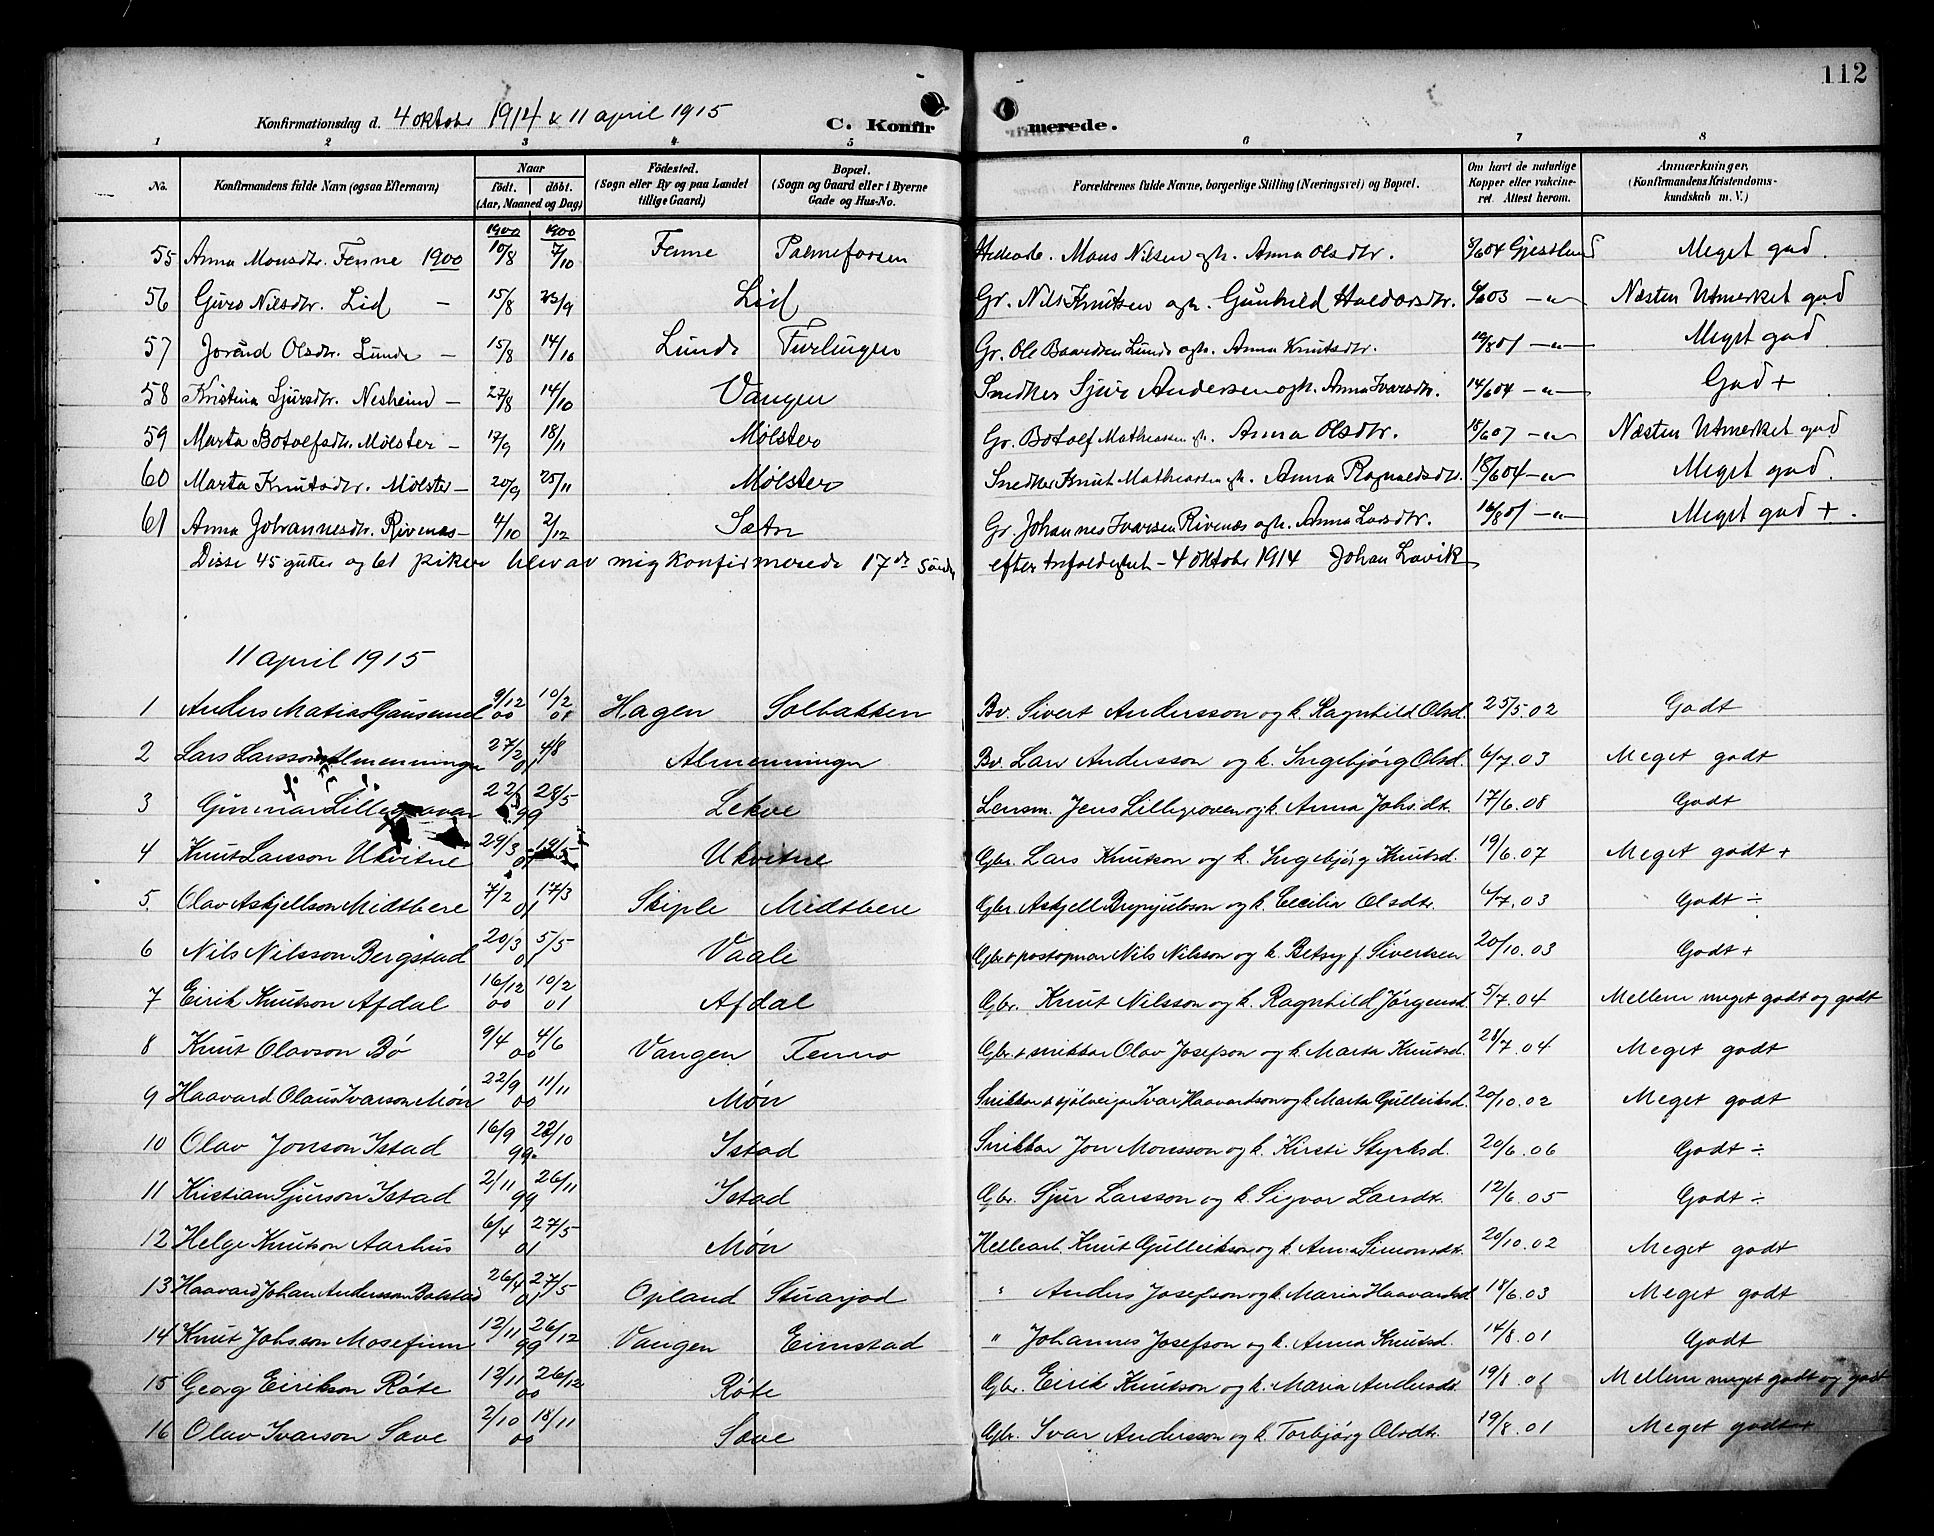 112
Konfirmationsdag d. 4 oktobr 1914 & 11 april 1915 C. Konfir merede.
1 2 3 4 5 6 7 8
No. Konfirmandens fulde Navn (ogsaa Efternavn) Naar født. døbt. (Aar, Maaned og Dag) Fødested. (Sogn eller By og paa Landet tillige Gaard) Bopæl. (Sogn og Gaard eller i Byerne Gade og Hus-No. Forældrenes fulde Navne, borgerlige Stilling (Næringsvei) og Bopæl. Om havt de naturlige Kopper eller vakcineret. Attest herom. Anmærkninger, (Konfirmandens Kristendomskundskab m. V.)
1900 1900
55 Anna Monsdtr. Fenne 1900 10/8 7/10 Fenne Palmeforsen Mons Nilsen oh. Anna Olsdtr. 8/604 Gjestlund Meget god.
56 Guro Nilsdtr. Lid - 15/8 23/9 Lid Gr. Nils Knutsen oh. Gunhild Haldorsdtr. 6/603 -"- Næsten Utmerket god
57 Jorand Olsdtr. Lunde - 15/8 14/10 Lunde Gr. Ole Baardsen Lunde oh. Anna Knutsdtr. 19/801 -"- Meget god
58 Kristina Sjursdtr. Nesheim - 27/8 14/10 Vangen Snedker Sjur Andersen oh. Anna Ivarsdtr. 14/604 -"- God +
59 Marta Botolfsdtr. Mølster - 17/9 18/11 Mølster Gr. Botolf Matheassen oh. Anna Olsdtr. 18/607 -"- Næsten Utmerket god
60 Marta Knutsdtr. Mølster - 20/9 25/11 Mølster Snedker Knut Matheassen oh. Anna Ragnaldsdtr. 18/604 -"- Meget god.
61 Anna Johannesdtr. Rivenæs - 4/10 2/12 Sætr Gr. Johannes Ivarsen Rivenæs oh. Anna Larsdtr. 16/801 -"- Meget god +.
Disse 45 gutter og 61 piker blev av mig konfirmerede 17de Søndag efter trefoldighet - 4 oktobr 1914 Johan Lavik
11 april 1915
1 Anders Matias Gausemel 9/12 00 10/2 01 Hagen Solbakken Bv. Sivert Andersson og k. Ragnhild Olsd. 25/5.02 Godt
2 Lars Larsson Almenningen 27/2 01 4/8 Almenningen Bv. Lars Andersson og k. Ingebjørg Olsd. 6/7.03 Meget godt
3 Gunnar Lillegraven 22/3 28/5 99 Lekve Lensm. Jens Lillegraven og k. Anna Johs.dt. 17/6.08 Godt
4 Knut Larsson Ukvitne 29/3 01 19/5 Ukvitne Gbr. Lars Knutson og k. Ingebjørg Knutsd. 19/6.07 Meget godt +
5. Olav Askjellson Midtbere 7/2 01 17/3 Skiple Midtbere Gbr. Askjell Brynjulvson og k. Cecilia Olsdt. 6/7.03 Godt ÷
6 Nils Nilsson Bergstad 20/3 01 5/5 Vaale Gbr. & postopnar Nils Nilsson og k. Betsy f. Sivertsen 20/10.03 Godt +
7 Eirik Knutson Afdal 16/12 00 10/2 01 Afdal Gbr. Knut Nilsson og k. Ragnhild Jørgensd. 5/7.04 Mellem meget godt og godt
8 Knut Olavson Bø 9/4 00 4/6 Vangen Fenno Gbr. & snikkar Olav Josefson og k. Marta Knutsd. 28/7.04 Meget godt
9 Haavard Olaus Ivarson Møn 22/9 00 11/11 Møn Snikkar & sjølveigar Ivar Haavardson og k. Marta Gulleiksd. 20/10.02 Meget godt
10 Olav Jonson Istad 16/9 99 22/10 Istad Snikkar Jon Monsson og k. Kirsti Styrksd. 20/6.06 Godt ÷
11 Kristian Sjurson Istad 2/11 99 26/11 Istad Gbr. Sjur Larsson og k. Sigvor Larsdt. 12/6.05 Godt ÷
12 Helge Knutson Aarhus 6/4 01 27/5 Møn Hellearb. Knut Gulleikson og k. Anna Simonsdt. 20/10.02 Meget godt
13 Haavard Johan Andersson Bolstad 26/4 01 27/5 Opland " Anders Josefson og k. Maria Haavardsd 18/6.03 Meget godt
14 Knut Johs.son Mosefinn 12/11 99 26/12 Vangen Eimstad " Johannes Josefson og k. Anna Knutsd. 14/8.01 Godt
15 Georg Eirikson Røte 12/11 00 26/12 Røte Gbr. Eirik Knutson og k. Maria Andersdt. 19/8.01 Mellem meget godt og godt
16 Olav Ivarson Sæve 2/10 00 18/11 Sæve Gbr. Ivar Andersson og k. Torbjørg Olsdt. 19/8.01 Meget godt +